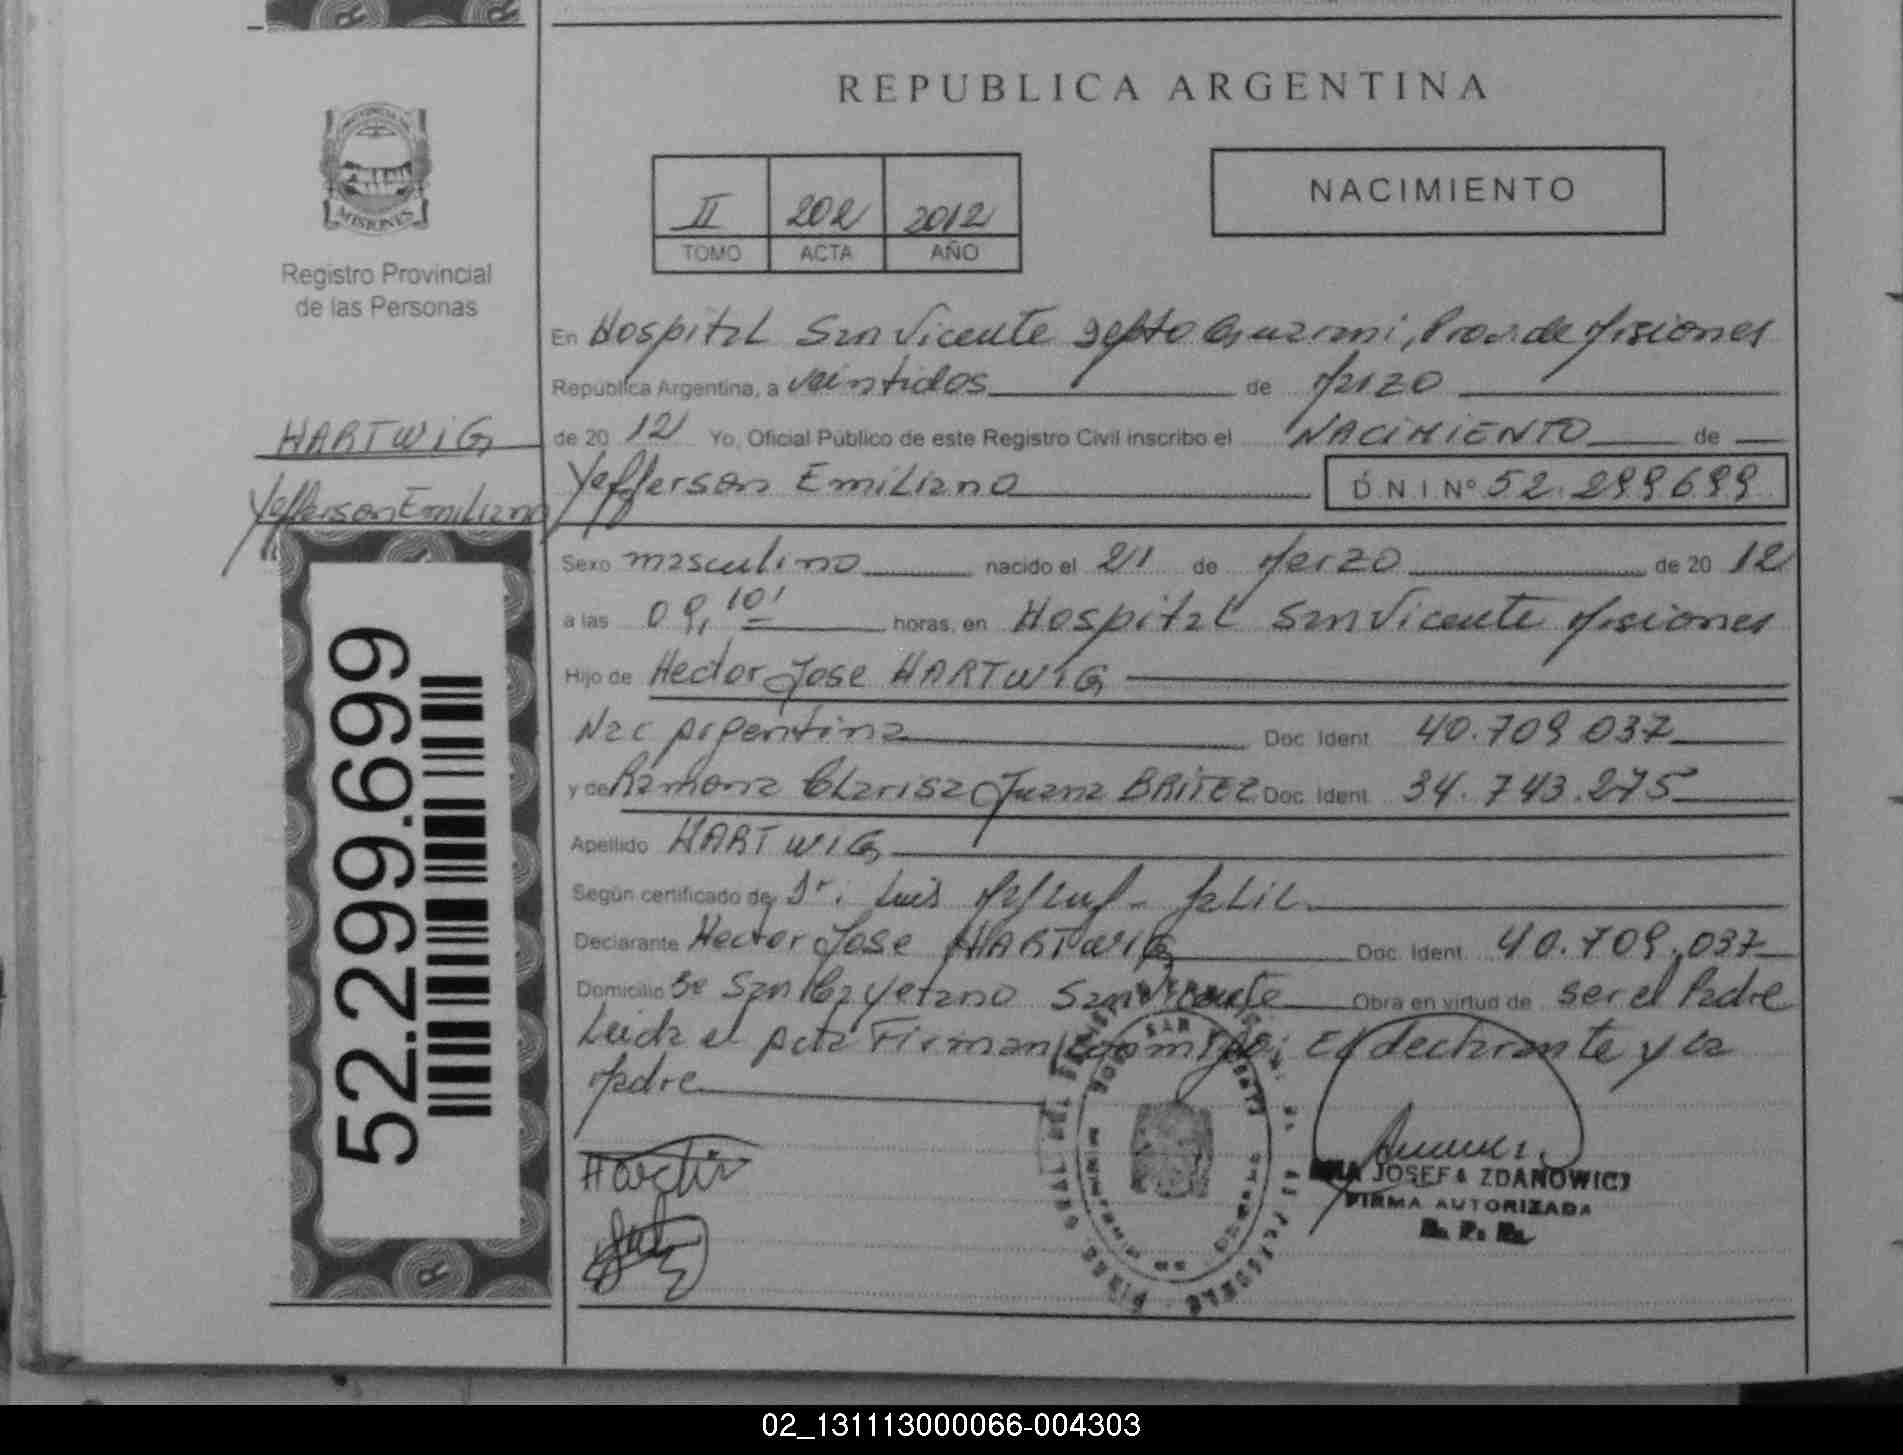 REPUBLICA ARGENTINA
MISIONES
Registro Provincial
de las Personas
II 202 2012
TOMO ACTA AÑO
NACIMIENTO
En Hospital San Vicente Depto Guarani, Prov. de Misiones
República Argentina, a veintidos de Marzo
de 2012 Yo, Oficial Público de este Registro Civil inscribo el NACIMIENTO de
Yefferson Emiliano D N I Nº 52.299699
HARTWIG
Yefferson Emiliano
Sexo masculino nacido el 21 de Marzo de 2012
a las 09,10' horas, en Hospital San Vicente Misiones
Hijo de Hector Jose HARTWIG
Nac Argentina Doc. Ident. 40.709037
y de Ramona Clarisa Juana BRITEZ Doc. Ident. 34.743.275
Apellido HARTWIG
Según certificado de Dr: Luis
Declarante Hector Jose HARTWIG Doc. Ident. 40.709.037
Domicilio Bº San Cayetano San Vicente Obra en virtud de ser el Padre
Leida el Acta Firman conmigo; El declarante y la
Madre
JOSEFA ZDANOWICZ
FIRMA AUTORIZADA
R. P. P.
52.299.699
02_131113000066-004303